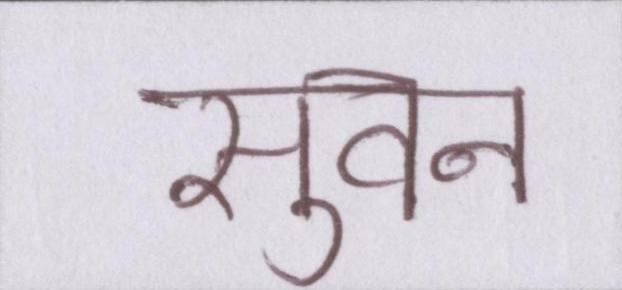 सुवन